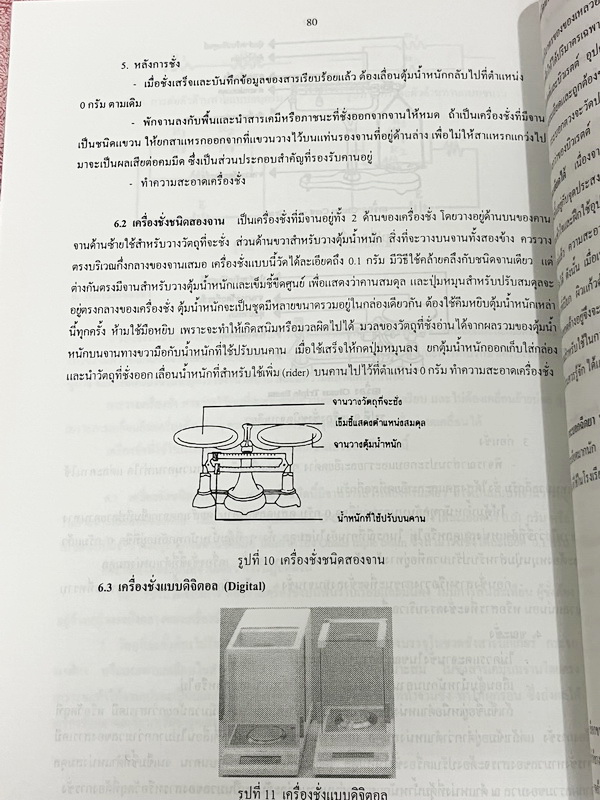 80
5. หลังการชั่ง
- เมื่อชั่งเสร็จและบันทึกข้อมูลของสารเรียบร้อยแล้ว ต้องเลื่อนตุ้มน้ำหนักกลับไปที่ตำแหน่ง
0 กรัม ตามเดิม
- พักจานลงกับพื้นและนำสารเคมีหรือภาชนะที่ชั่งออกจากจานให้หมด ถ้าเป็นเครื่องชั่งที่มีจาน
เป็นชนิดแขวน ให้ยกสาแหรกออกจากที่แขวนวางไว้บนแท่นรองจานที่อยู่ด้านล่าง เพื่อไม่ให้สาแหรกแกว่งไป
มาจะเป็นผลเสียต่อคมมีด ซึ่งเป็นส่วนประกอบสำคัญที่รองรับคานอยู่
- ทำความสะอาดเครื่องชั่ง
6.2 เครื่องชั่งชนิดสองจาน เป็นเครื่องชั่งที่มีจานอยู่ทั้ง 2 ด้านของเครื่องชั่ง โดยวางอยู่ด้านบนของคาน
จานด้านซ้ายใช้สำหรับวางวัตถุที่จะชั่ง ส่วนด้านขวาสำหรับวางตุ้มน้ำหนัก สิ่งที่จะวางบนจานทั้งสองข้าง ควรวาง
ตรงบริเวณกึ่งกลางของจานเสมอ เครื่องชั่งแบบนี้วัดได้ละเอียดถึง 0.1 กรัม มีวิธีใช้คล้ายคลึงกับชนิดจานเดียว แต่
ต่างกันตรงมีจานสำหรับวางตุ้มน้ำหนักและเข็มชี้ขีดศูนย์ เพื่อแสดงว่าคานสมดุล และปุ่มหมุนสำหรับปรับสมดุลจะ
อยู่ตรงกลางของเครื่องชั่ง ตุ้มน้ำหนักจะเป็นชุดมีหลายขนาดรวมอยู่ในกล่องเดียวกัน ต้องใช้คีมหยิบตุ้มน้ำหนักเหล่า
นี้ทุกครั้ง ห้ามใช้มือหยิบ เพราะจะทำให้เกิดสนิมหรือมวลผิดไปได้ มวลของวัตถุที่ชั่งอ่านได้จากผลรวมของตุ้มน้ำ
หนักบนจานทางขวามือกับน้ำหนักที่ใช้ปรับบนคาน เมื่อใช้เสร็จให้กดปุ่มหมุนลง ยกตุ้มน้ำหนักออกเก็บใส่กล่อง
และนำวัตถุที่ชั่งออก เลื่อนน้ำหนักที่สำหรับใช้เพิ่ม (rider) บนคานไปไว้ที่ตำแหน่ง 0 กรัม ทำความสะอาดเครื่องชั่ง
จานวางวัตถุที่จะชั่ง
เข็มชี้แสดงตำแหน่งสมดุล
จานวางตุ้มน้ำหนัก
น้ำหนักที่ใช้ปรับบนคาน
รูปที่ 10 เครื่องชั่งชนิดสองจาน
6.3 เครื่องชั่งแบบดิจิตอล (Digital)
รูปที่ 11 เครื่องชั่งแบบดิจิตอล